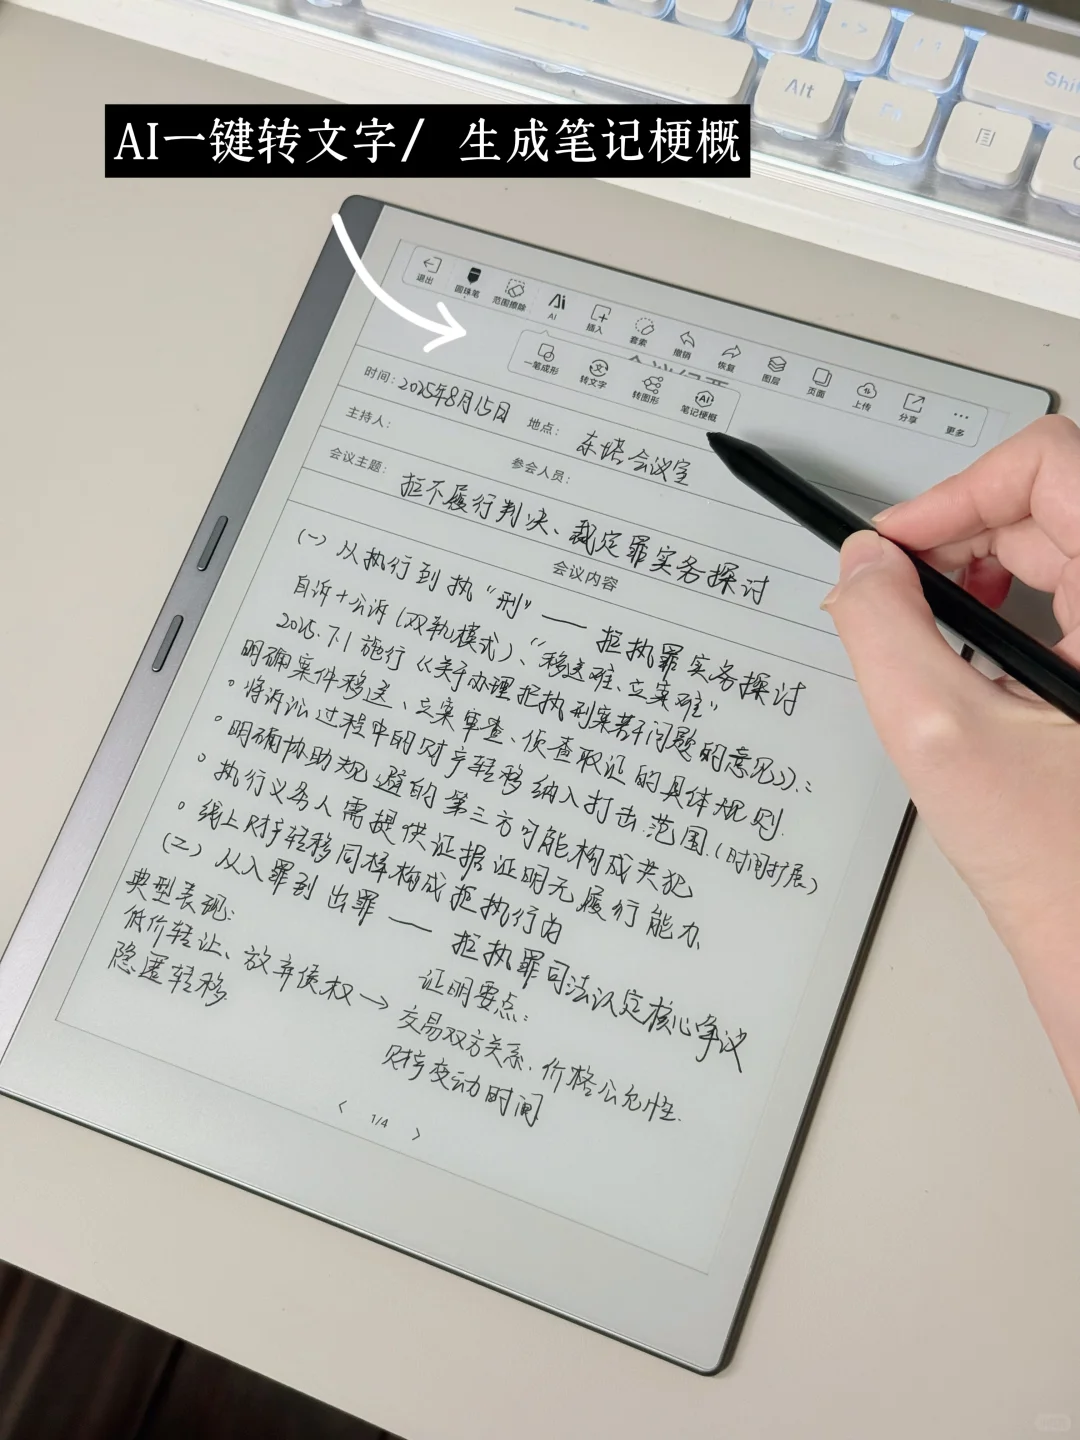 Shift
Alt
Fn
AI一键转文字/ 生成笔记梗概
退出 圆珠笔 范围擦除 AI 插入 套索 撤销 恢复 图层 页面 上传 分享 更多
一笔成形 转文字 转图形 笔记梗概
时间：2025年8月15日 地点：东塔会议室
主持人： 参会人员：
会议主题：拒不履行判决、裁定罪实务探讨
会议内容
(一) 从执行到执"刑" —— 拒执罪实务探讨
自诉+公诉(双轨模式)、"移送难、立案难"
2025.7.1 施行《关于办理拒执刑案若干问题的意见》：
明确案件移送、立案审查、侦查取证的具体规则.
。将诉讼过程中的财产转移纳入打击范围.(时间扩展)
。明确协助规避的第三方可能构成共犯
。执行义务人需提供证据证明无履行能力
。线上财产转移同样构成拒执行为
(二) 从入罪到出罪 —— 拒执罪司法认定核心争议
典型表现：
低价转让、放弃债权→
隐匿转移
证明要点：
交易双方关系.价格公允性.
财产变动时间
1/4